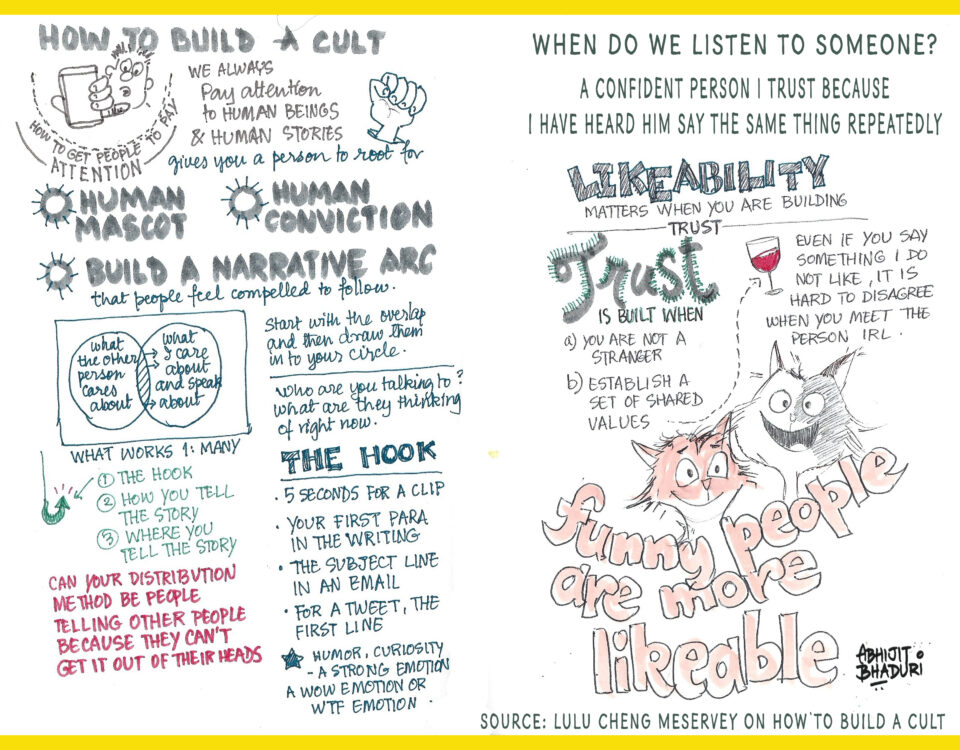 HOW TO BUILD A CULT
HOW TO GET PEOPLE TO PAY
ATTENTION
WE ALWAYS
Pay attention
to HUMAN BEINGS
& HUMAN STORIES
gives you a person to root for
HUMAN
MASCOT
HUMAN
CONVICTION
BUILD A NARRATIVE ARC
that people feel compelled to follow.
what
the other
person
cares
about
what
I care
about
and speak
about
Start with the overlap
and then draw them
in to your circle.
Who are you talking to?
what are they thinking
of right now.
WHAT WORKS 1: MANY
① THE HOOK
② HOW YOU TELL
THE STORY
③ WHERE YOU
TELL THE STORY
CAN YOUR DISTRIBUTION
METHOD BE PEOPLE
TELLING OTHER PEOPLE
BECAUSE THEY CAN'T
GET IT OUT OF THEIR HEADS
THE HOOK
• 5 SECONDS FOR A CLIP
• YOUR FIRST PARA
IN THE WRITING
• THE SUBJECT LINE
IN AN EMAIL
• FOR A TWEET, THE
FIRST LINE
HUMOR, CURIOSITY
- A STRONG EMOTION
A WOW EMOTION OR
WTF EMOTION.
WHEN DO WE LISTEN TO SOMEONE?
A CONFIDENT PERSON I TRUST BECAUSE
I HAVE HEARD HIM SAY THE SAME THING REPEATEDLY
LIKEABILITY
MATTERS WHEN YOU ARE BUILDING
TRUST
Trust
IS BUILT WHEN
a) YOU ARE NOT A
STRANGER
b) ESTABLISH A
SET OF SHARED
VALUES
EVEN IF YOU SAY
SOMETHING I DO
NOT LIKE, IT IS
HARD TO DISAGREE
WHEN YOU MEET THE
PERSON IRL.
funny people
are more
likeable
ABHIJIT
BHADURI
SOURCE: LULU CHENG MESERVEY ON HOW TO BUILD A CULT